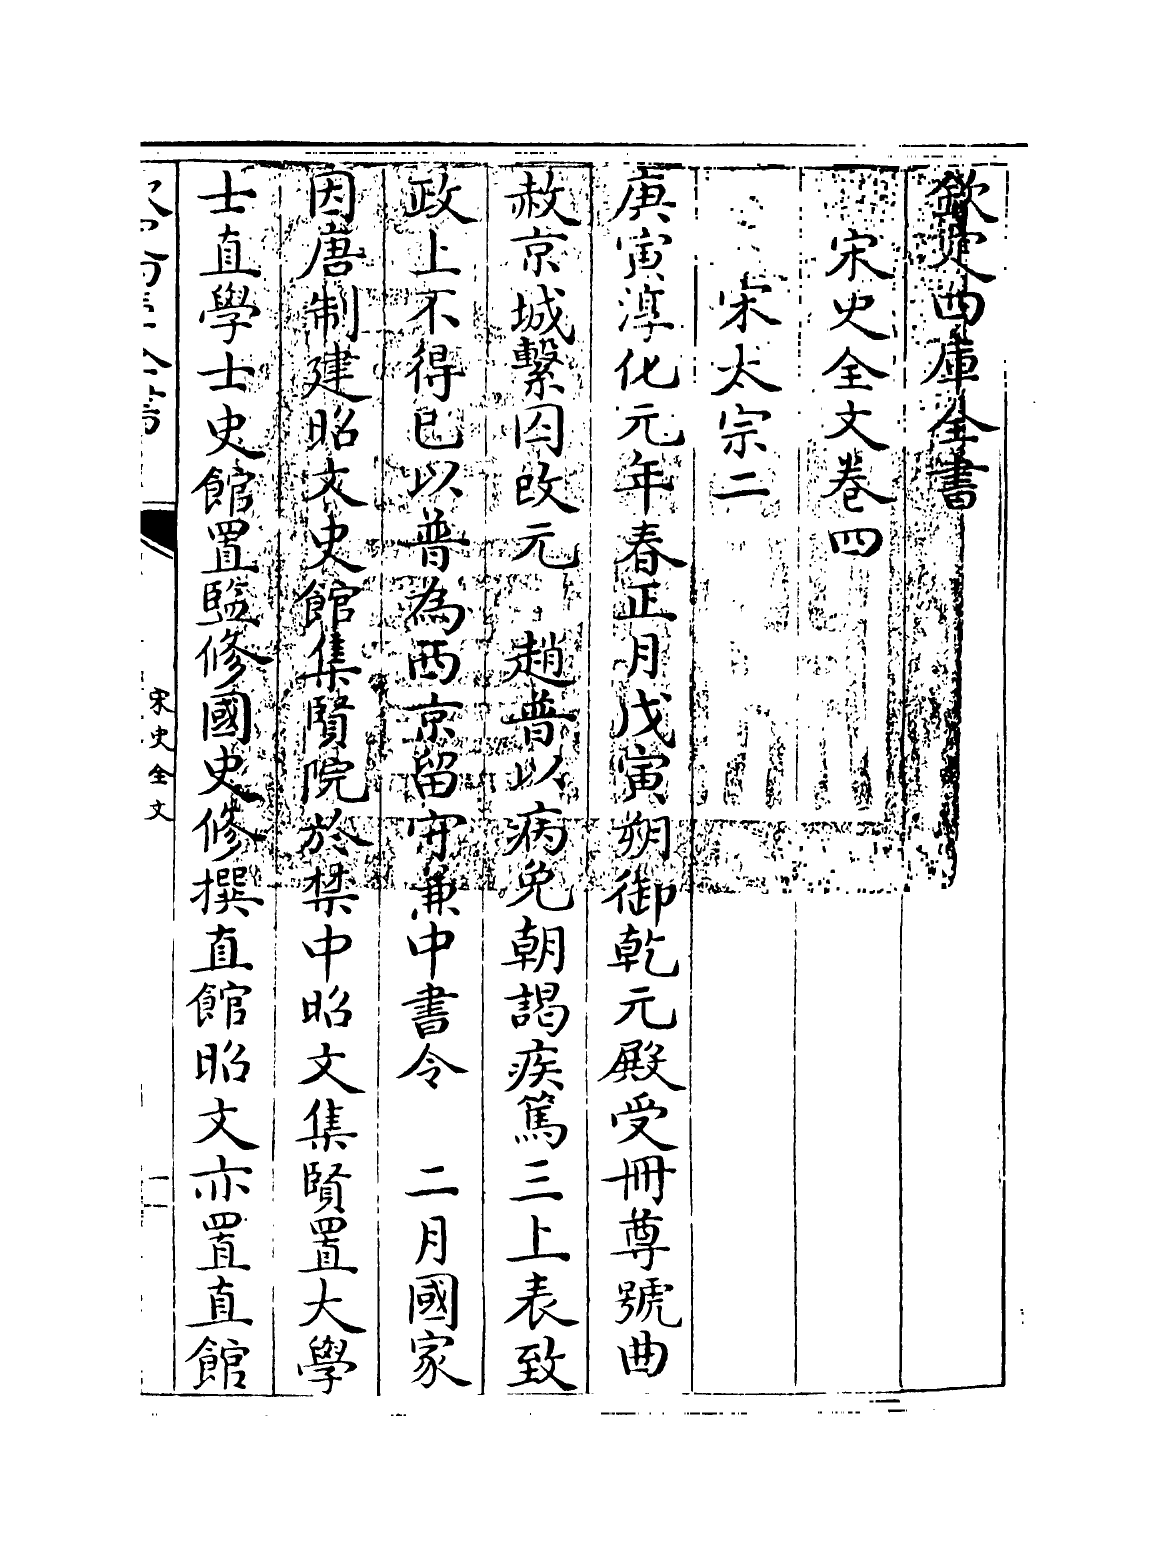 欽定四庫全書
宋史全文卷四
宋太宗二
庚寅淳化元年春正月戊寅朔御乾元殿受冊尊號曲
赦京城繫囚改元　趙普以病免朝謁疾篤三上表致
政上不得已以普為西京留守兼中書令　二月國家
因唐制建昭文史館集賢院於禁中昭文集賢置大學
士直學士史館置監修國史修撰直館昭文亦置直館
宋史全文